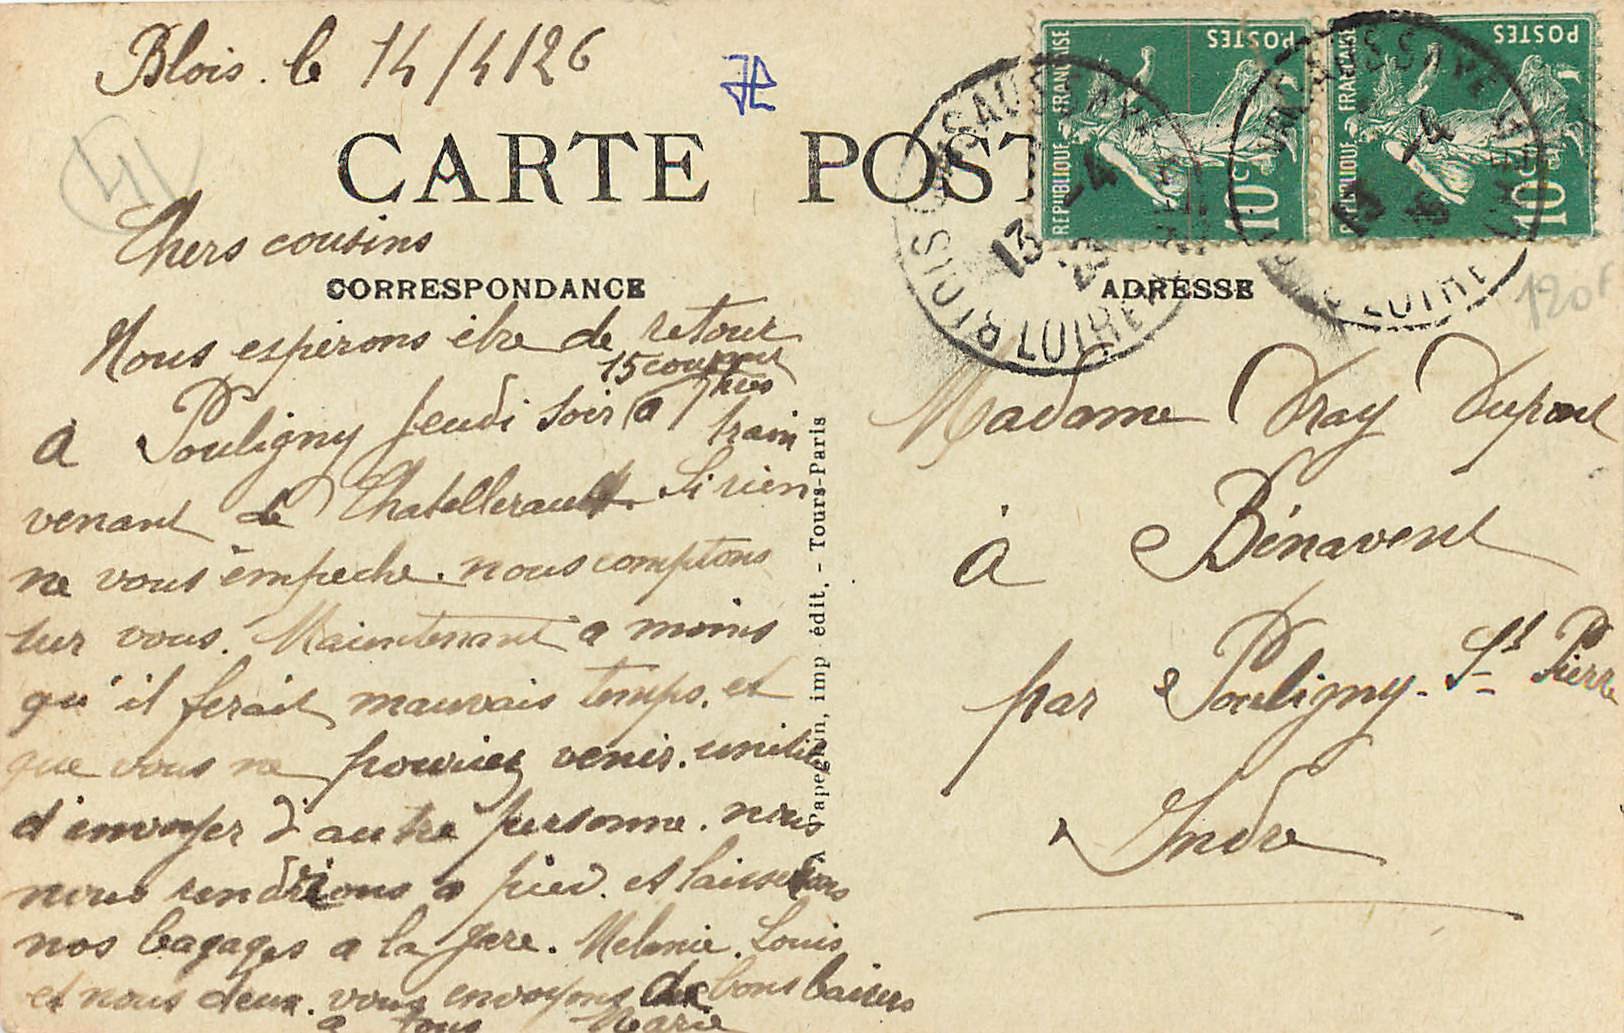 Blois. le 14/4/26
CARTE POST
Chers cousins
CORRESPONDANCE
Nous esperons être de retour
15 coupper
a Pouligny jeudi soir (a 7 hres
train
venant de Chatellerault. Si rien
ne vous empeche. nous comptons
sur vous. Maintenant a moins
qu'il ferait mauvais temps. et
que vous ne pouriez venir. unitile
d'envoyer d'autre personne. nous
nous rendrions a pied. et laisserons
nos bagages a la gare. Melanie. Louis
et nous deux. vous envoyons de bons baisers
a tous Marie
A Papeghin, imp édit. - Tours-Paris
REPUBLIQUE FRANÇAISE
POSTES
10c
REPUBLIQUE FRANÇAISE
POSTES
10c
13 -4
LOIR
-4
120f
ADRESSE
Madame Vray Dupont
à Bénavent
par Pouligny-St Pierre
Indre